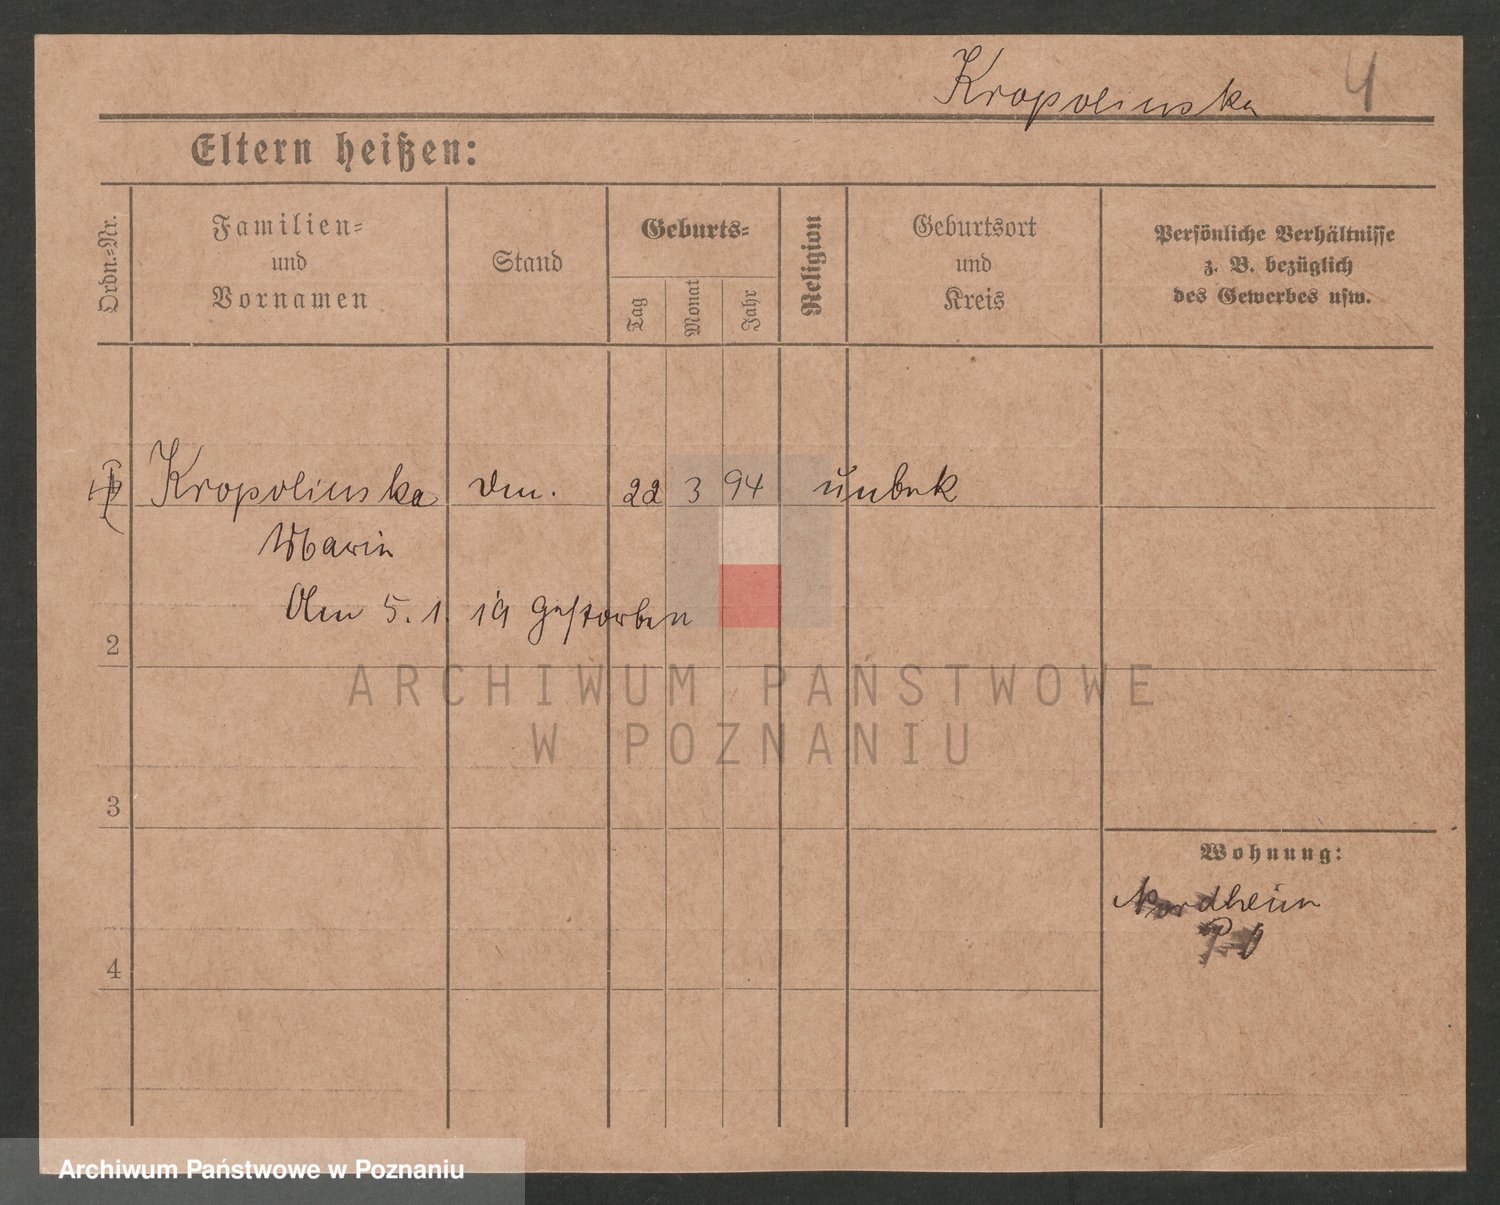 Kropolinska 4
Eltern heißen:
Ordn.-Nr.
Familien-
und
Vornamen
Stand
Geburts-
Tag
Monat
Jahr
Religion
Geburtsort
und
Kreis
Persönliche Verhältnisse
z. B. bezüglich
des Gewerbes usw.
Kropolinska 22 3 94 unbek
Marie
Am 5. 1. 19 gestorben
2
3
4
Wohnung:
Nordheim
ARCHIWUM PAŃSTWOWE
W POZNANIU
Archiwum Państwowe w Poznaniu